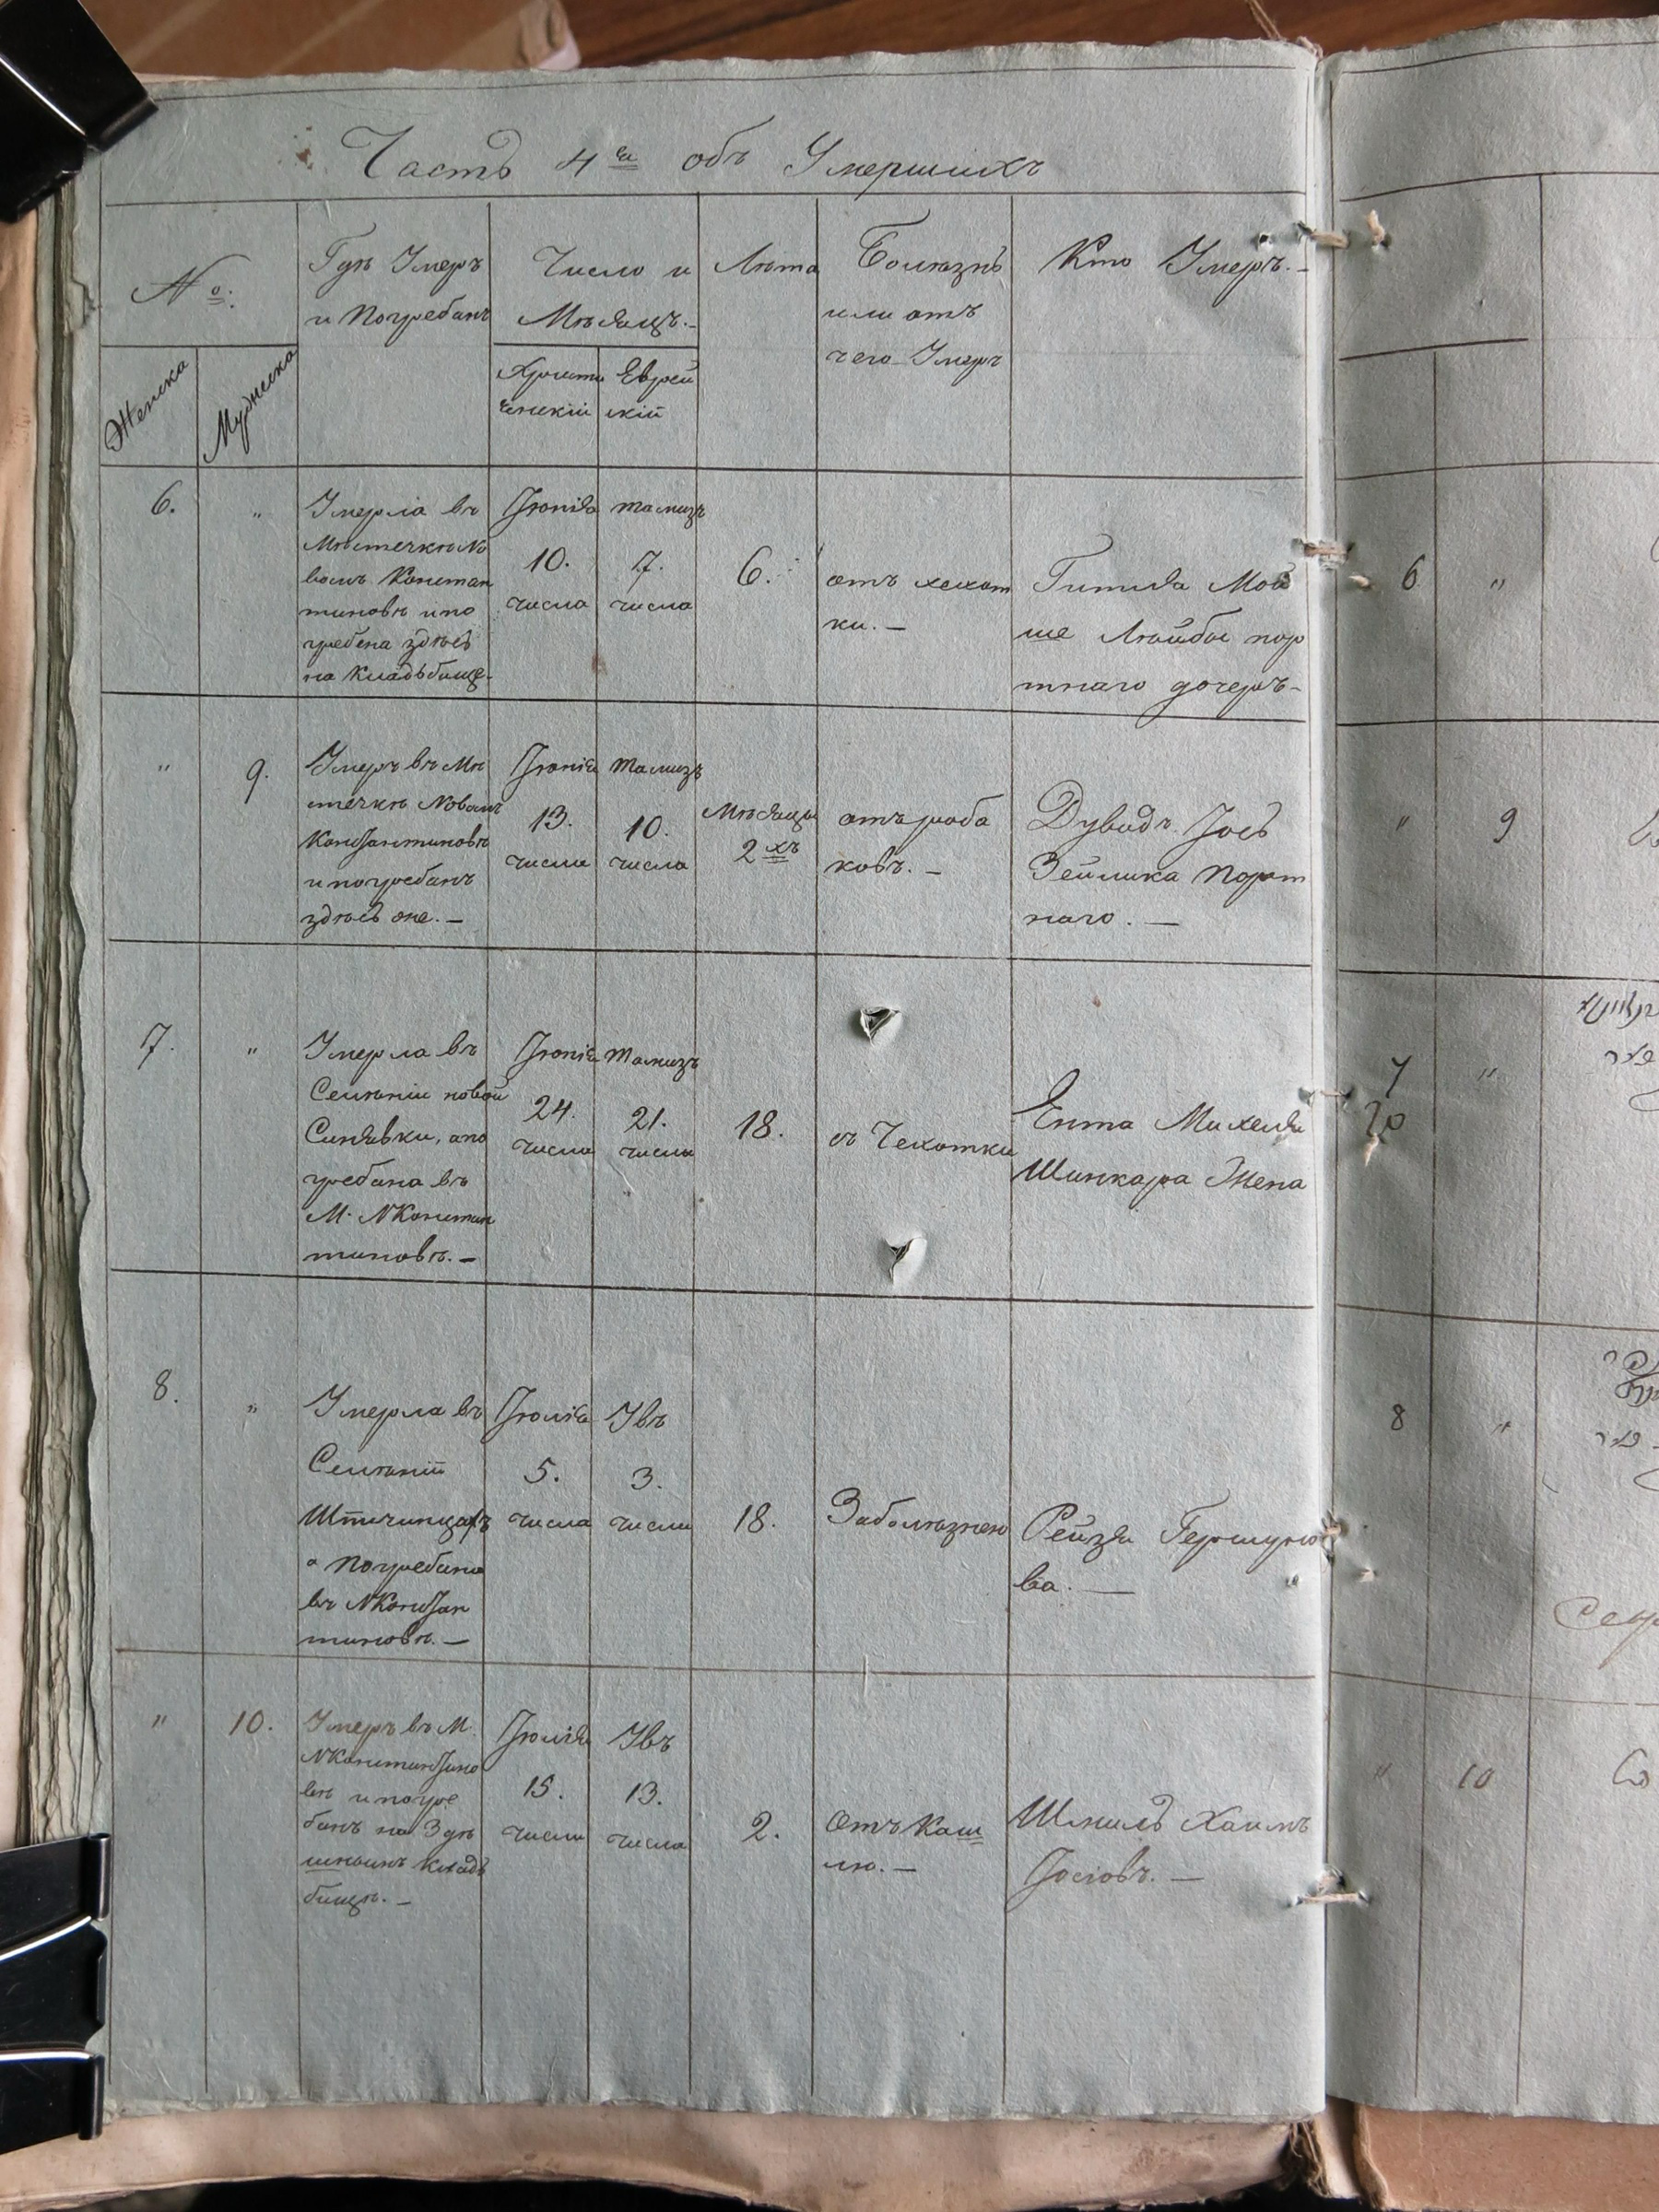 Часть 4ая объ Умершихъ
№:
Женска
Мужеска
Гдѣ Умеръ
и Погребанъ
Число и
Мѣсяцъ.-
Христи
янский
Еврей
скій
Лѣта
Болѣзнь
или отъ
чего Умеръ
Кто Умеръ.-
6.
"
Умерла въ
Мѣстечкѣ Но
вомъ Констан
тиновѣ и по
гребена здѣсь
на Кладьбище.
Іюнія
10.
числа
тамизъ
7.
числа
6.
отъ
ки.-
Гитля Мой
ше Лейбы пор
тнаго дочеръ-
"
9.
Умеръ въ Мѣ
стечкѣ Новомъ
Константиновѣ
и погребанъ
здѣсь оне.-
Іюнія
13.
числа
тамизъ
10.
числа
Мѣсяцы
2хъ
отъ роба
ковъ.-
Дувидъ Іось
Зейлика Порт
наго.-
7.
"
Умерла въ
Селѣніи новой
Синявки, а по
гребана въ
М. NКонстан
тиновѣ.-
Іюнія
24.
числа
тамизъ
21.
числа
18.
съ Чехотки
Ента Михеля
Шинкара Жена
8.
"
Умерла въ
Селѣніи
а погребана
въ NКонстан
тиновѣ.-
Іюлія
5.
числа
Увъ
3.
числа
18.
Заболѣзнею
Рейзя Гершуно
ва.-
"
10.
Умеръ въ М.
NКонстантино
вѣ и погре
банъ на Здѣ
шномъ кладь
бищѣ.-
Іюлія
15.
числа
Увъ
13.
числа
2.
Отъ Каш
лю.-
Шмиль Хаимъ
Іосіовъ.-
6
"
"
9
7
"
8
"
"
10